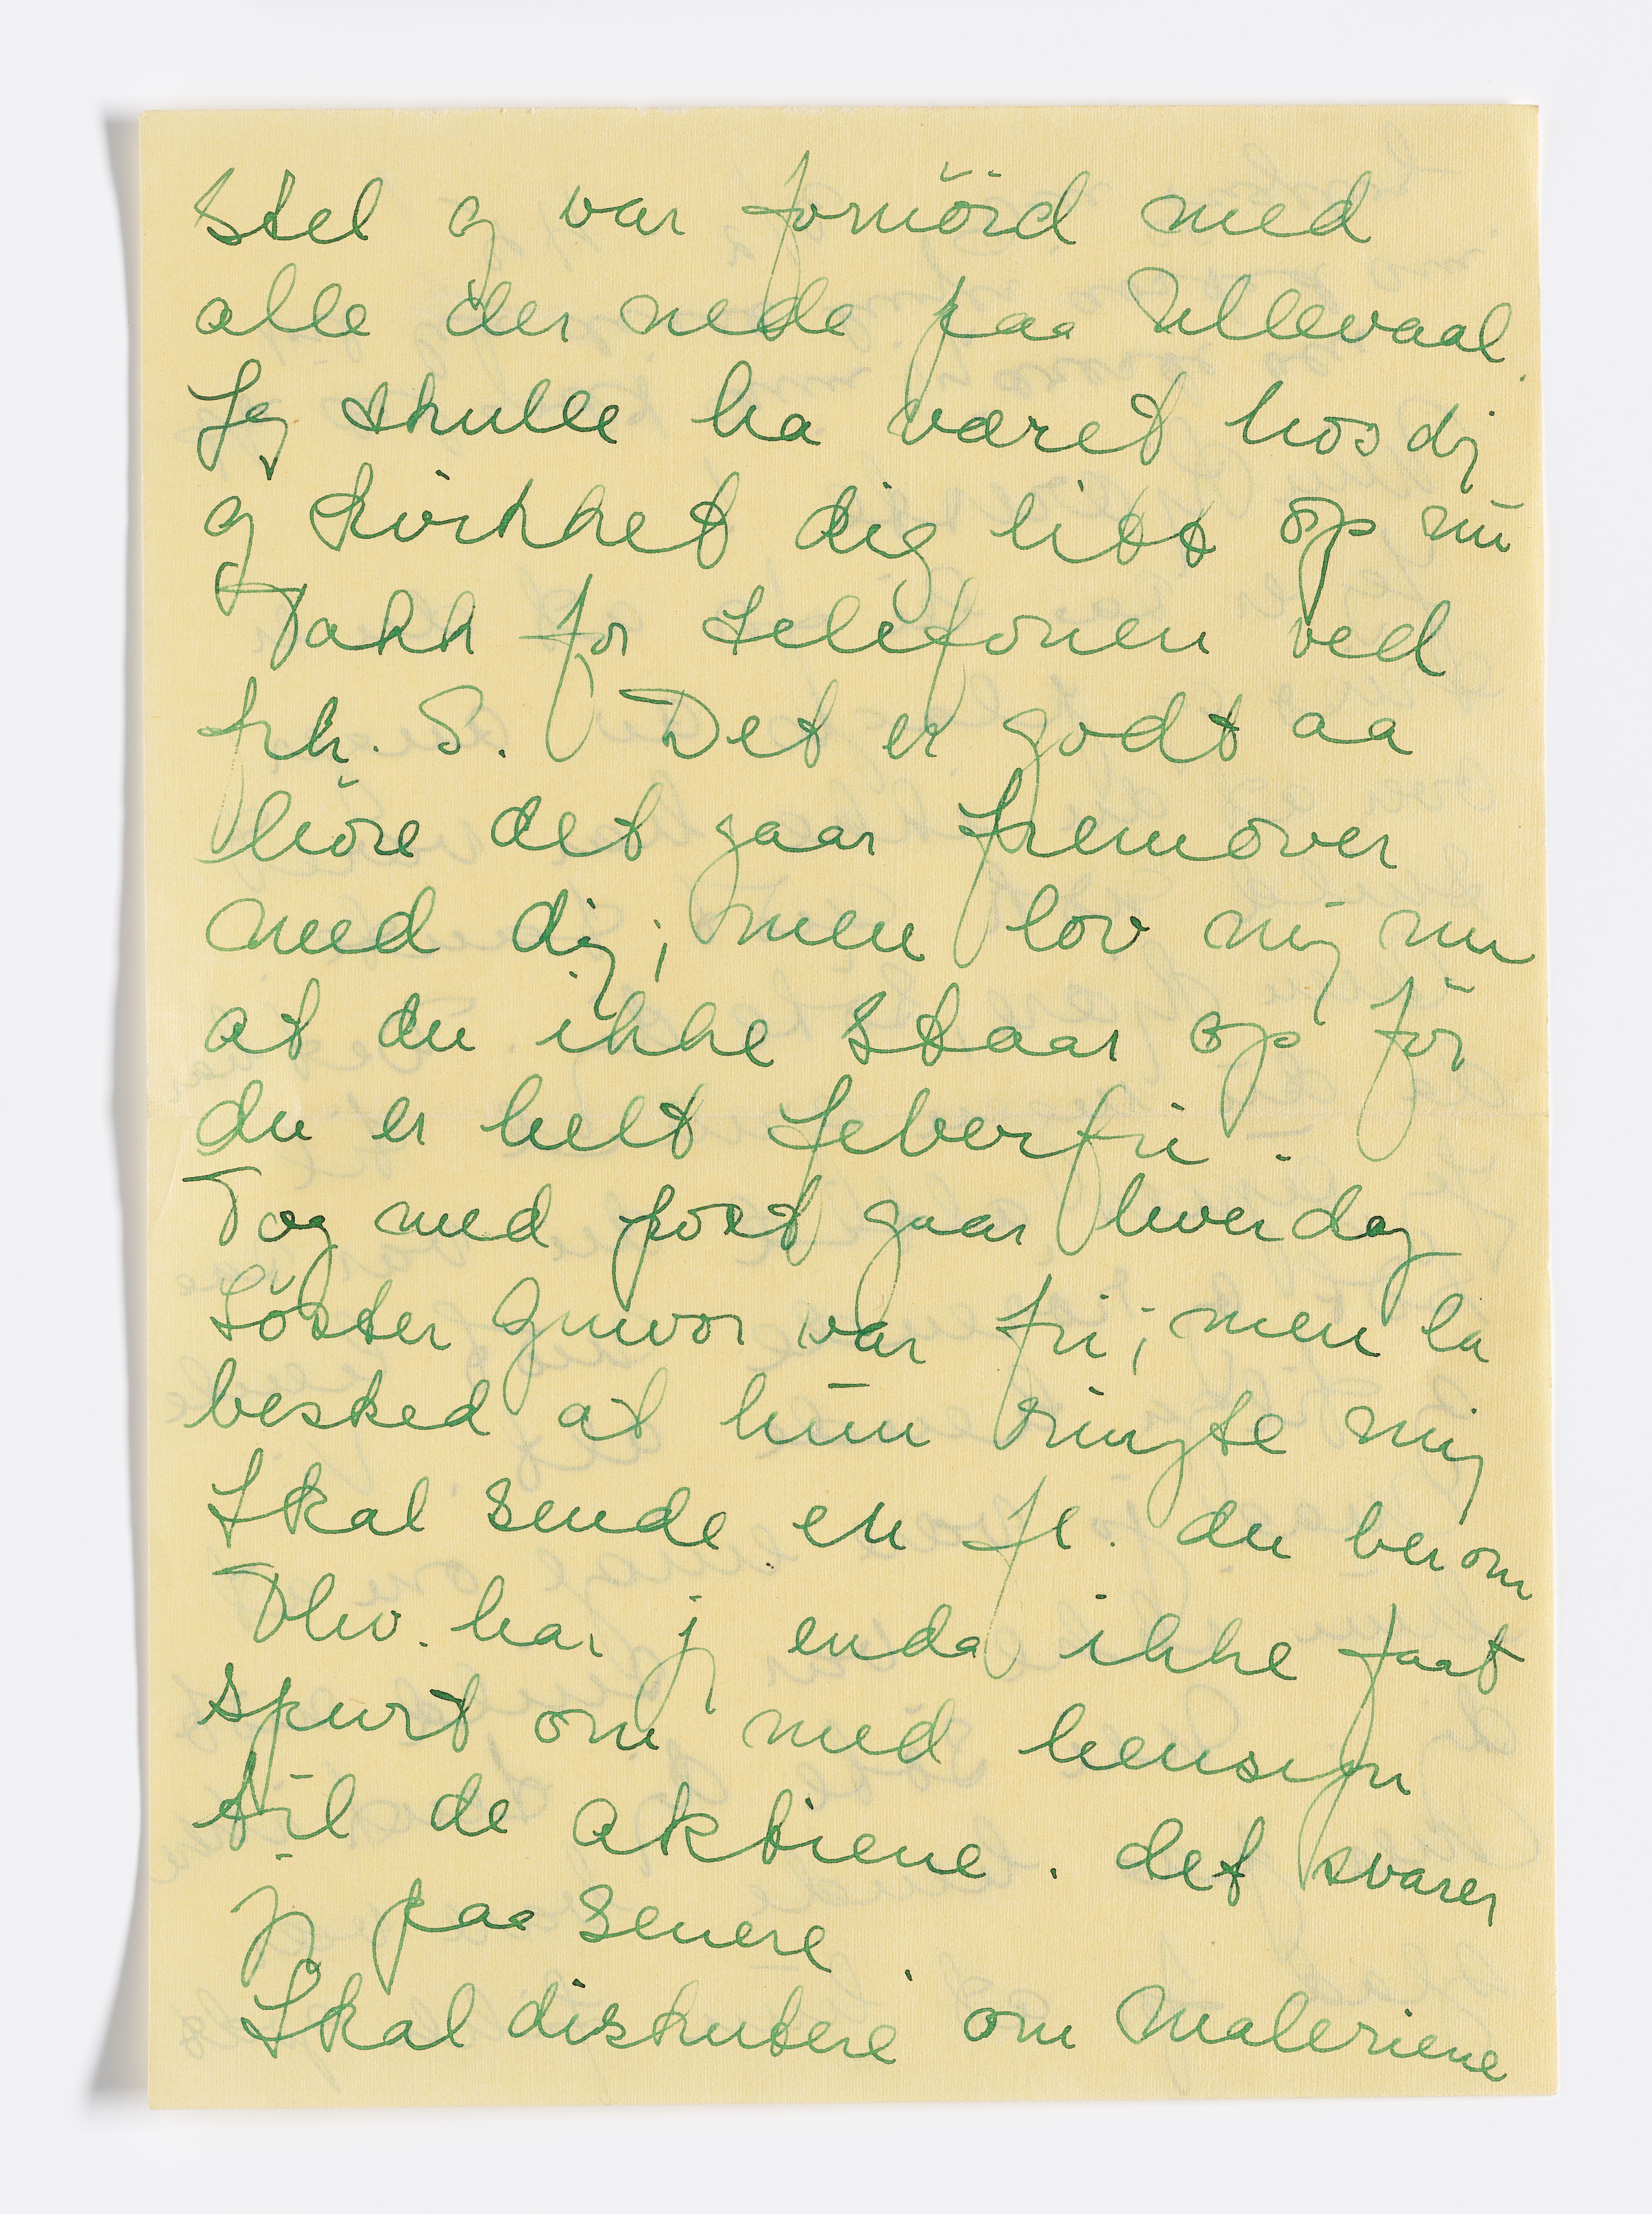 stel og var fornöid med
alle der nede paa Ullevaal.
Jeg skulle ha været hos dig
og kvikket dig litt op nu
Takk for telefonen ved
frk. S. Det er godt aa
höre det gaar fremover
med dig; men lov mig nu
at du ikke staar op för
du er helt feberfri.
Tog med post gaar hverdag
Söster Gunvor var fri; men la
besked at hun ringte mig
Skal sende en fl. du ber om
har jeg enda ikke faat
spurt om med hensyn
til de aktiene. det svarer
jeg paa senere.
Skal diskutere om maleriene